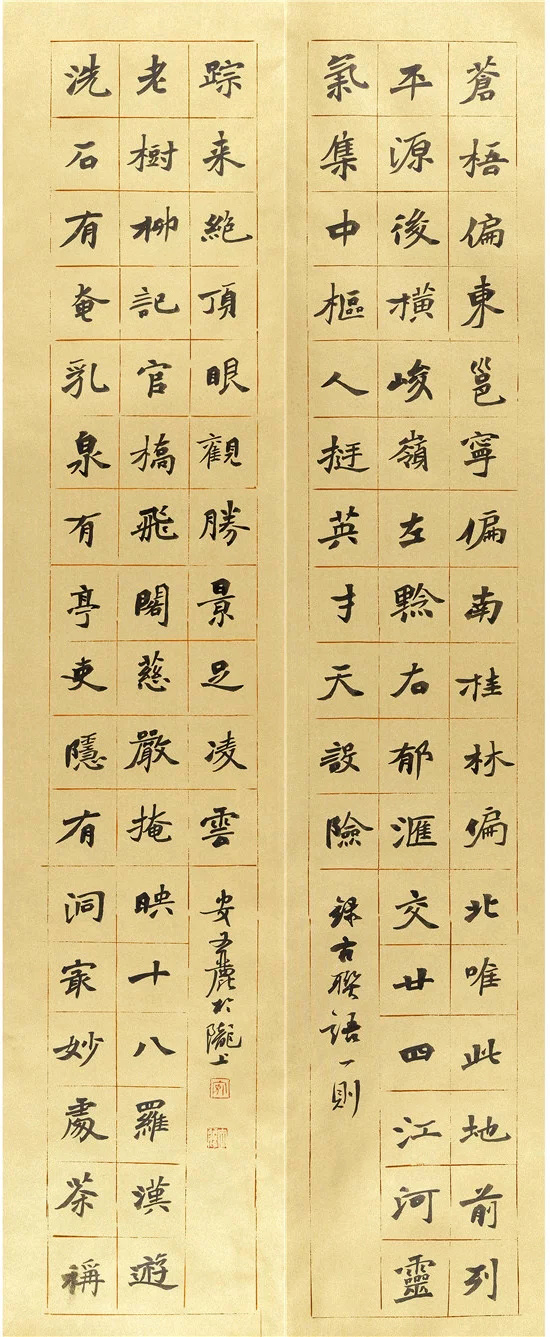 蒼梧偏東邕寧偏南桂林偏北唯此地前列
平源後橫峻嶺左黔右郁滙交廿四江河靈
氣集中樞人挺英才天設險
錄古聯語一則
洗石有奄乳泉有亭吏隱有洞㝡妙處茶稱
老樹柳記官橋飛閣慈嚴掩映十八羅漢遊
踪来絶頂眼觀勝景足凌雲
安 於隴上